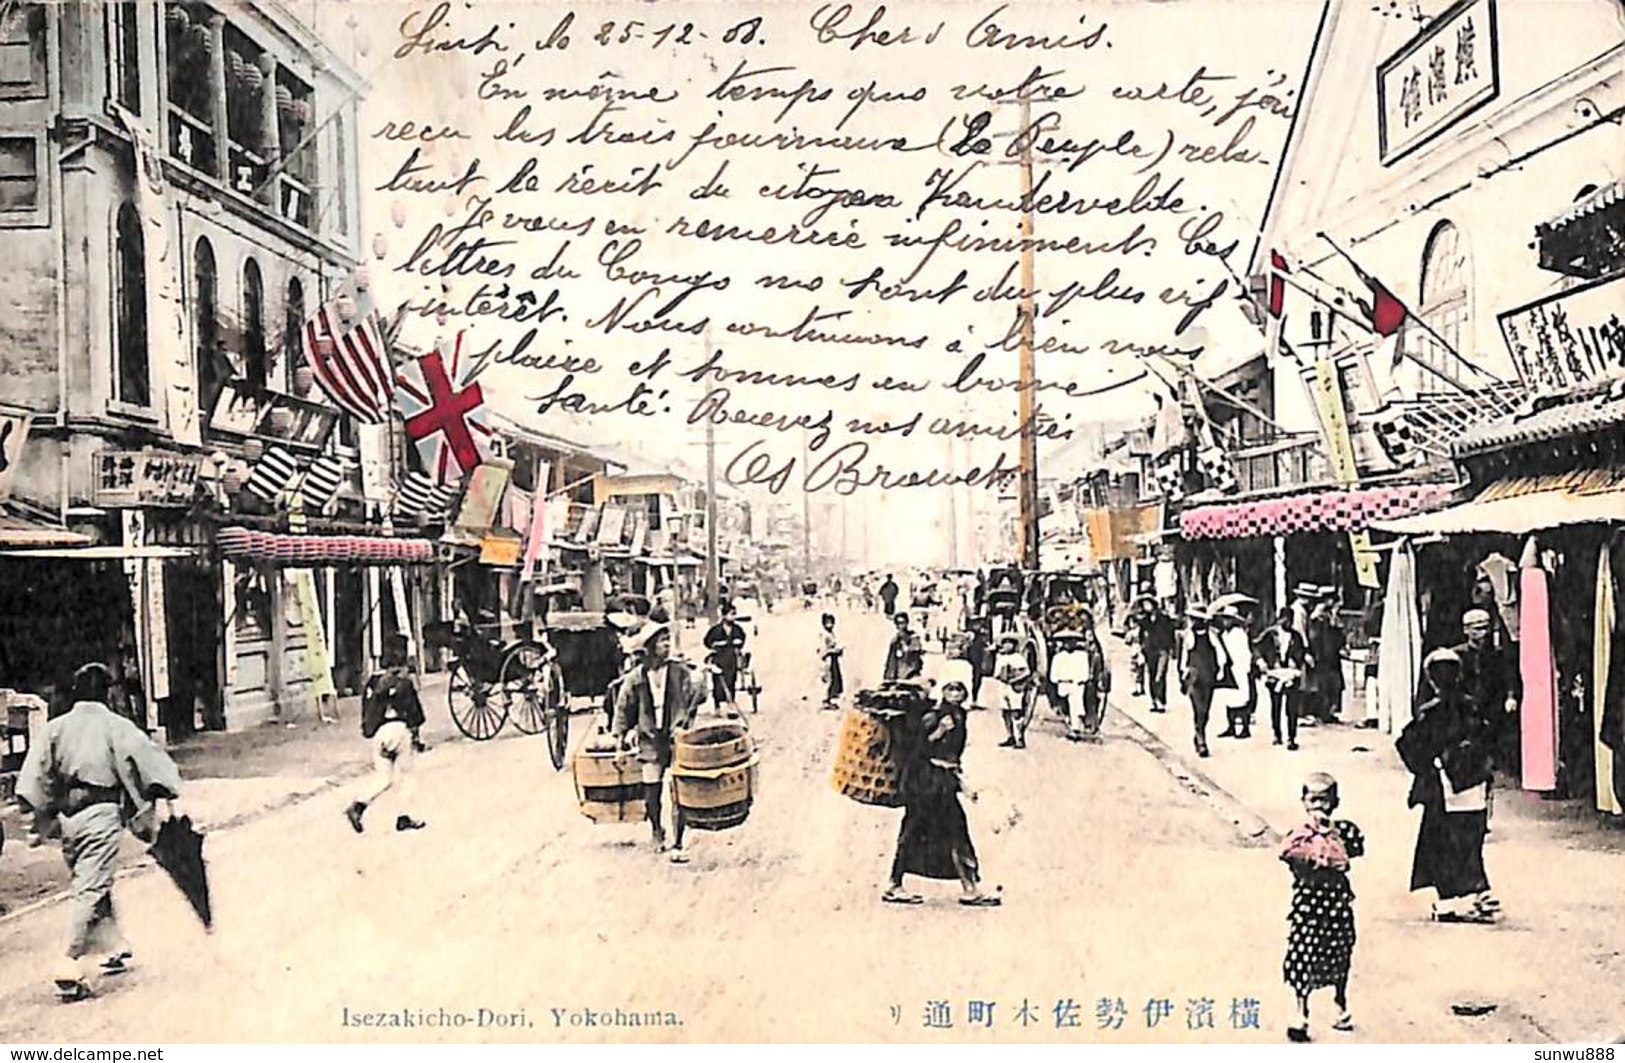 le 25-12-08. Chers Amis.
En même temps que votre carte, j'ai
recu les trois journaux (Le Peuple) rela-
tant le récit du citoyen Vandervelde.
Je vous en remercie infiniment. Ces
lettres du Congo me sont du plus vif
intérêt. Nous continuons à bien nous
plaire et sommes en bonne
santé. Recevez nos amitiés
Browet
横濱館
Isezakicho-Dori, Yokohama.
橫濱伊勢佐木町通リ
sunwu888